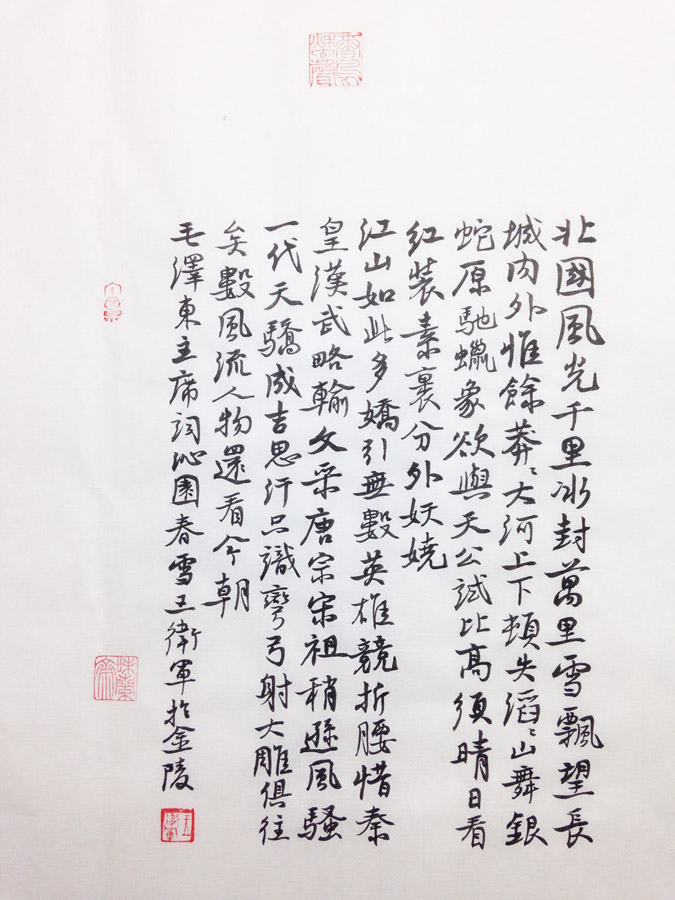 北國風光千里冰封萬里雪飄望長
城内外惟餘莽〻大河上下頓失滔〻山舞銀
蛇原馳蠟象欲與天公試比高須晴日看
紅裝素裹分外妖嬈
江山如此多嬌引無數英雄競折腰惜秦
皇漢武略輸文采唐宗宋祖稍遜風騷
一代天驕成吉思汗只識彎弓射大雕俱往
矣數風流人物還看今朝
毛澤東主席詞沁園春雪王衛軍於金陵
王衛軍